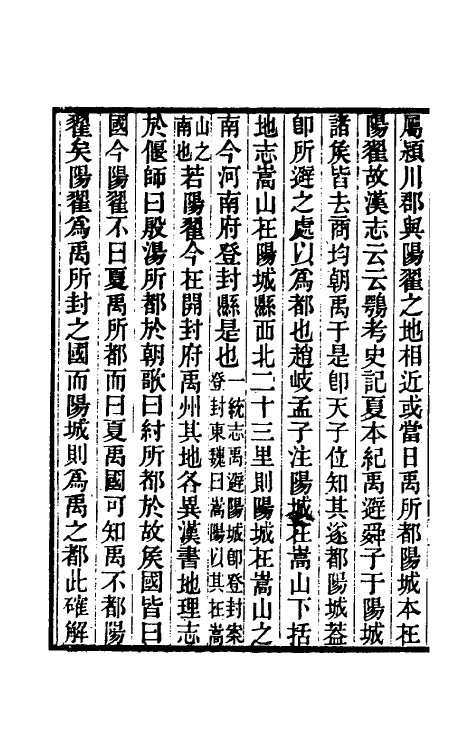 屬潁川郡與陽翟之地相近或當日禹所都陽城本在
陽翟故漢志云云鶚考史記夏本紀禹避舜子于陽城
諸矦皆去商均朝禹于是卽天子位知其遂都陽城葢
卽所避之處以爲都也趙岐孟子注陽城在嵩山下括
地志嵩山在陽城縣西北二十三里則陽城在嵩山之
南今河南府登封縣是也一統志禹避陽城卽登封案
登封東魏曰嵩陽以其在嵩
山之
南也若陽翟今在開封府禹州其地各異漢書地理志
於偃師曰殷湯所都於朝歌曰紂所都於故矦國皆曰
國今陽翟不曰夏禹所都而曰夏禹國可知禹不都陽
翟矣陽翟爲禹所封之國而陽城則爲禹之都此確解